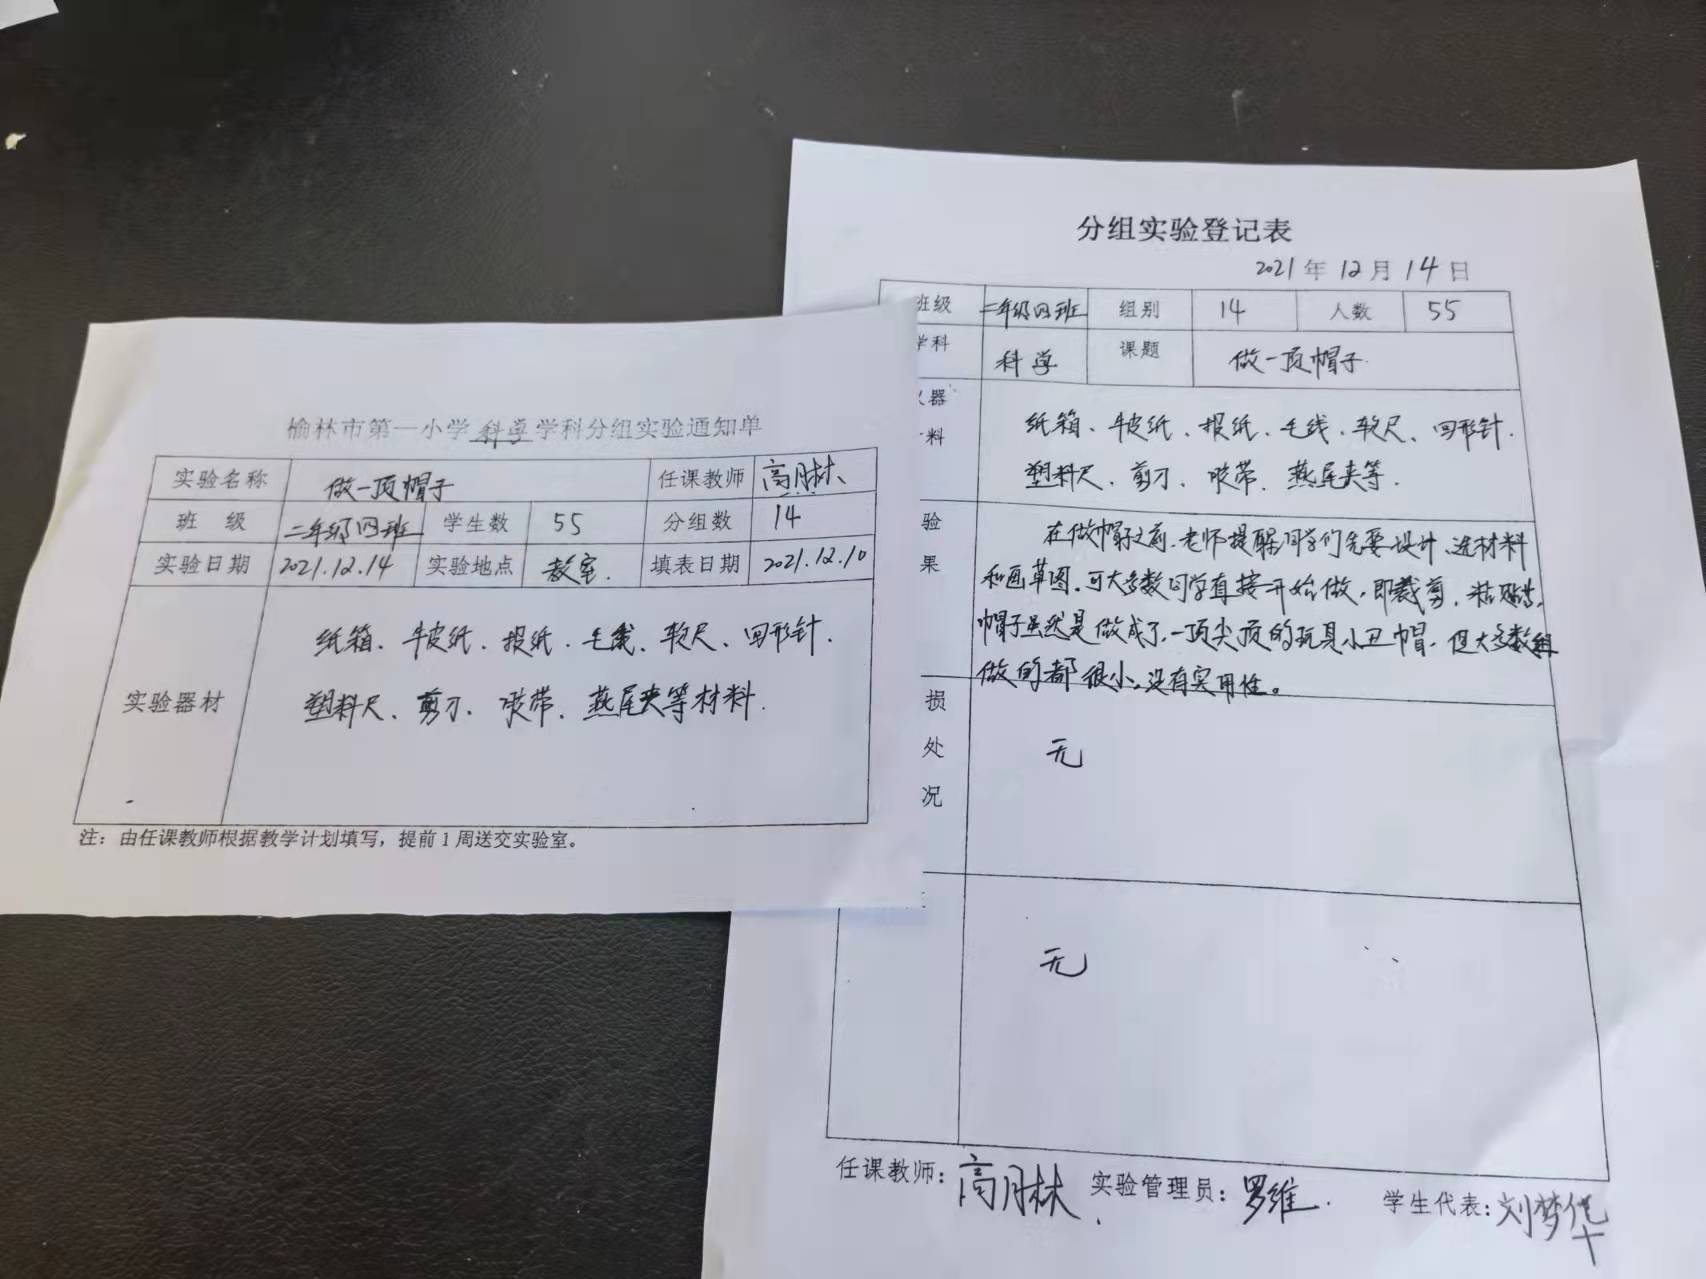 榆林市第一小学科学学科分组实验通知单
实验名称 做一顶帽子 任课教师 高月林
班 级 二年级四班 学生数 55 分组数 14
实验日期 2021.12.14 实验地点 教室. 填表日期 2021.12.10
纸箱、牛皮纸、报纸、毛线、软尺、回形针.
实验器材 塑料尺、剪刀、胶带、燕尾夹等材料.
注：由任课教师根据教学计划填写，提前1周送交实验室。
分组实验登记表
2021年12月14日
班级 二年级四班 组别 14 人数 55
学科 科学 课题 做一顶帽子.
仪器 纸箱、牛皮纸、报纸、毛线、软尺、回形针.
料 塑料尺、剪刀、胶带、燕尾夹等.
验 在做帽子之前，老师提醒同学们先要设计、选材料
果 和画草图，可大多数同学直接开始做，即裁剪、粘贴，
帽子虽然是做成了，一顶尖顶的玩具小丑帽，但大多数组
做的都很小，没有实用性。
损
处 无
况
无
任课教师：高月林 实验管理员：罗维. 学生代表：刘梦华